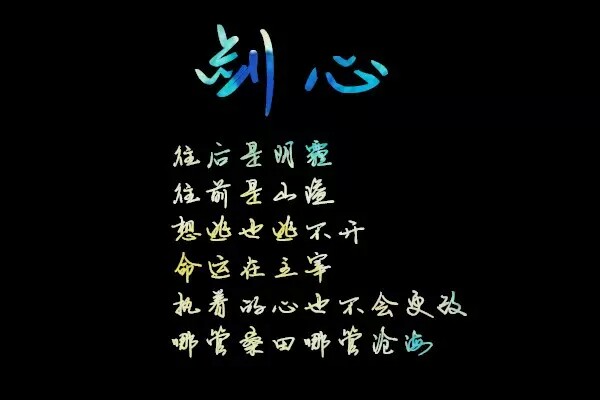 剑心
往后是阴霾
往前是山隘
想逃也逃不开
命运在主宰
执着的心也不会更改
哪管桑田哪管沧海